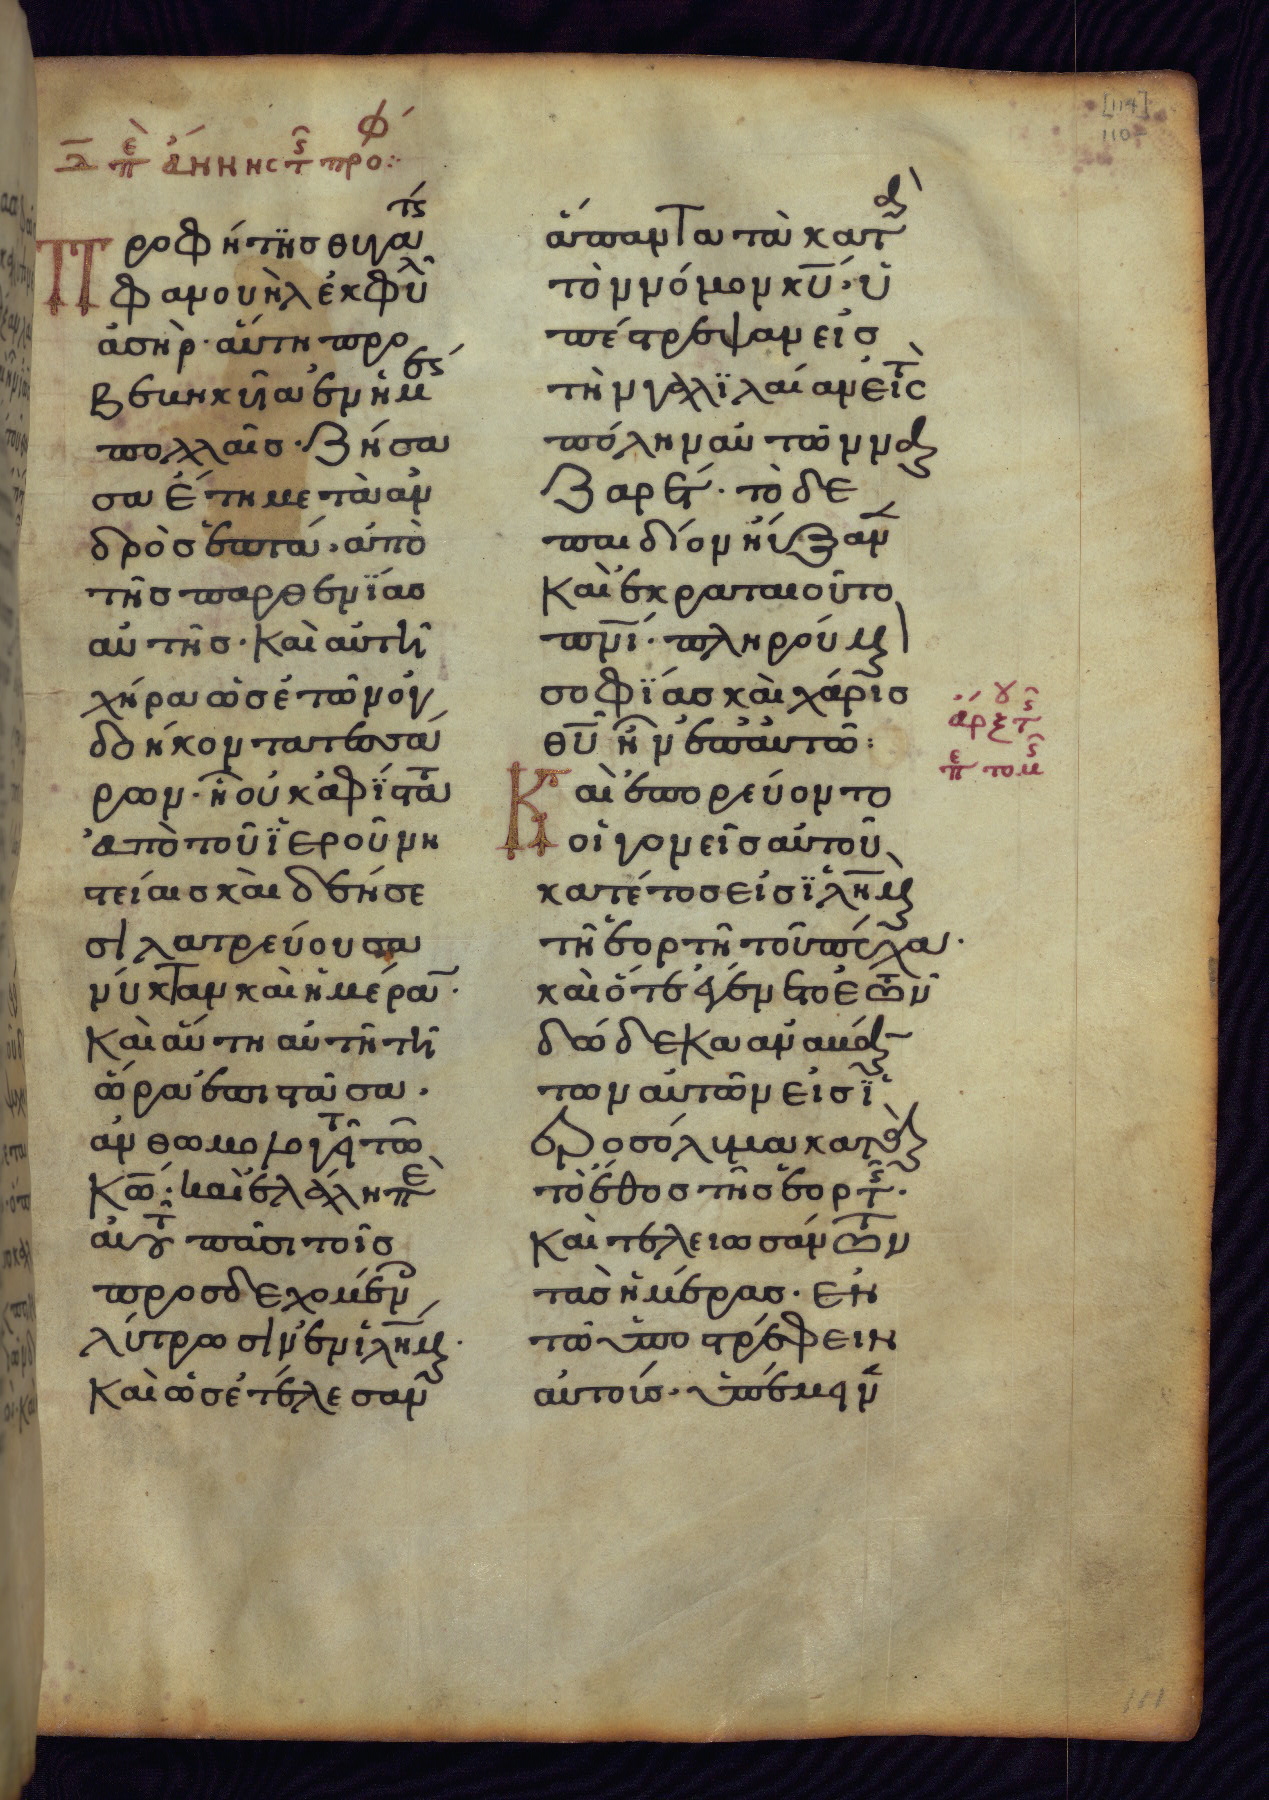 π ἄννης τ προφ
Προφήτης θυγατ
φανουὴλ ἐκ φυλ
ἀσήρ· αὕτη προ
βεβηκυῖα ἐν ἡμ
πολλαῖς· ζήσα
σα ἔτη μετὰ ἀν
δρὸς ἑπτά· ἀπὸ
τῆς παρθενΐας
αὐτῆς· καὶ αὐτὴ
χήρα ὡσ ἐτῶν ὀγ
δοήκοντατεσσά
ρων· ἣ οὐκ ἀφΐστα
ἀπὸ τοῦ ϊεροῦ νη
στείαις καὶ δεήσε
σι λατρεύουσα
νύκταν καὶ ἡμέρα·
Καὶ αὕτη αὐτῆ τῆ
ὥρα ἐπιστᾶσα·
ἀνθωμολογεῖτ τῶ
κω· καὶ ἐλάλη π
αυτ πᾶσι τοῖς
προσδεχομέν
λύτρωσιν ἐν ἱλημ·
Καὶ ὡς ἐτέλεσαν
ἅπαντα τὰ κατ
τὸν νόμον κυ· ὑ
πέστρεψαν εἰς
τὴν γαλϊλαίαν εἰς τ
πόλην αὐτῶν να
ζαρετ· τὸ δε
παιδίον ηὔξαν
Καὶ ἐκραταιοῦτο
πνι· πληρούμ
σοφΐας καὶ χάρις
θυ ἦν ἐπ αὐτῶ:
ἀρξ τ
π τομ
Καὶ ἐπορεύοντο
οἱ γονεῖς αὐτοῦ
κατ έτος εἰς ϊλημ
τῆ ἑορτῆ τοῦ πάσχα·
καὶ ὅτε ἐγένετο ἐτῶν
δώδεκα ἀναβάν
των αὐτῶν εἰς ϊ
εροσόλυμα κατὰ
τὸ ἔθος τῆς ἑορτ·
Καὶ τελειωσάντων
τὰς ἡμέρας· ἐν
τῶ ὑποστρέφειν
αὐτοὺς· ὑπέμειν